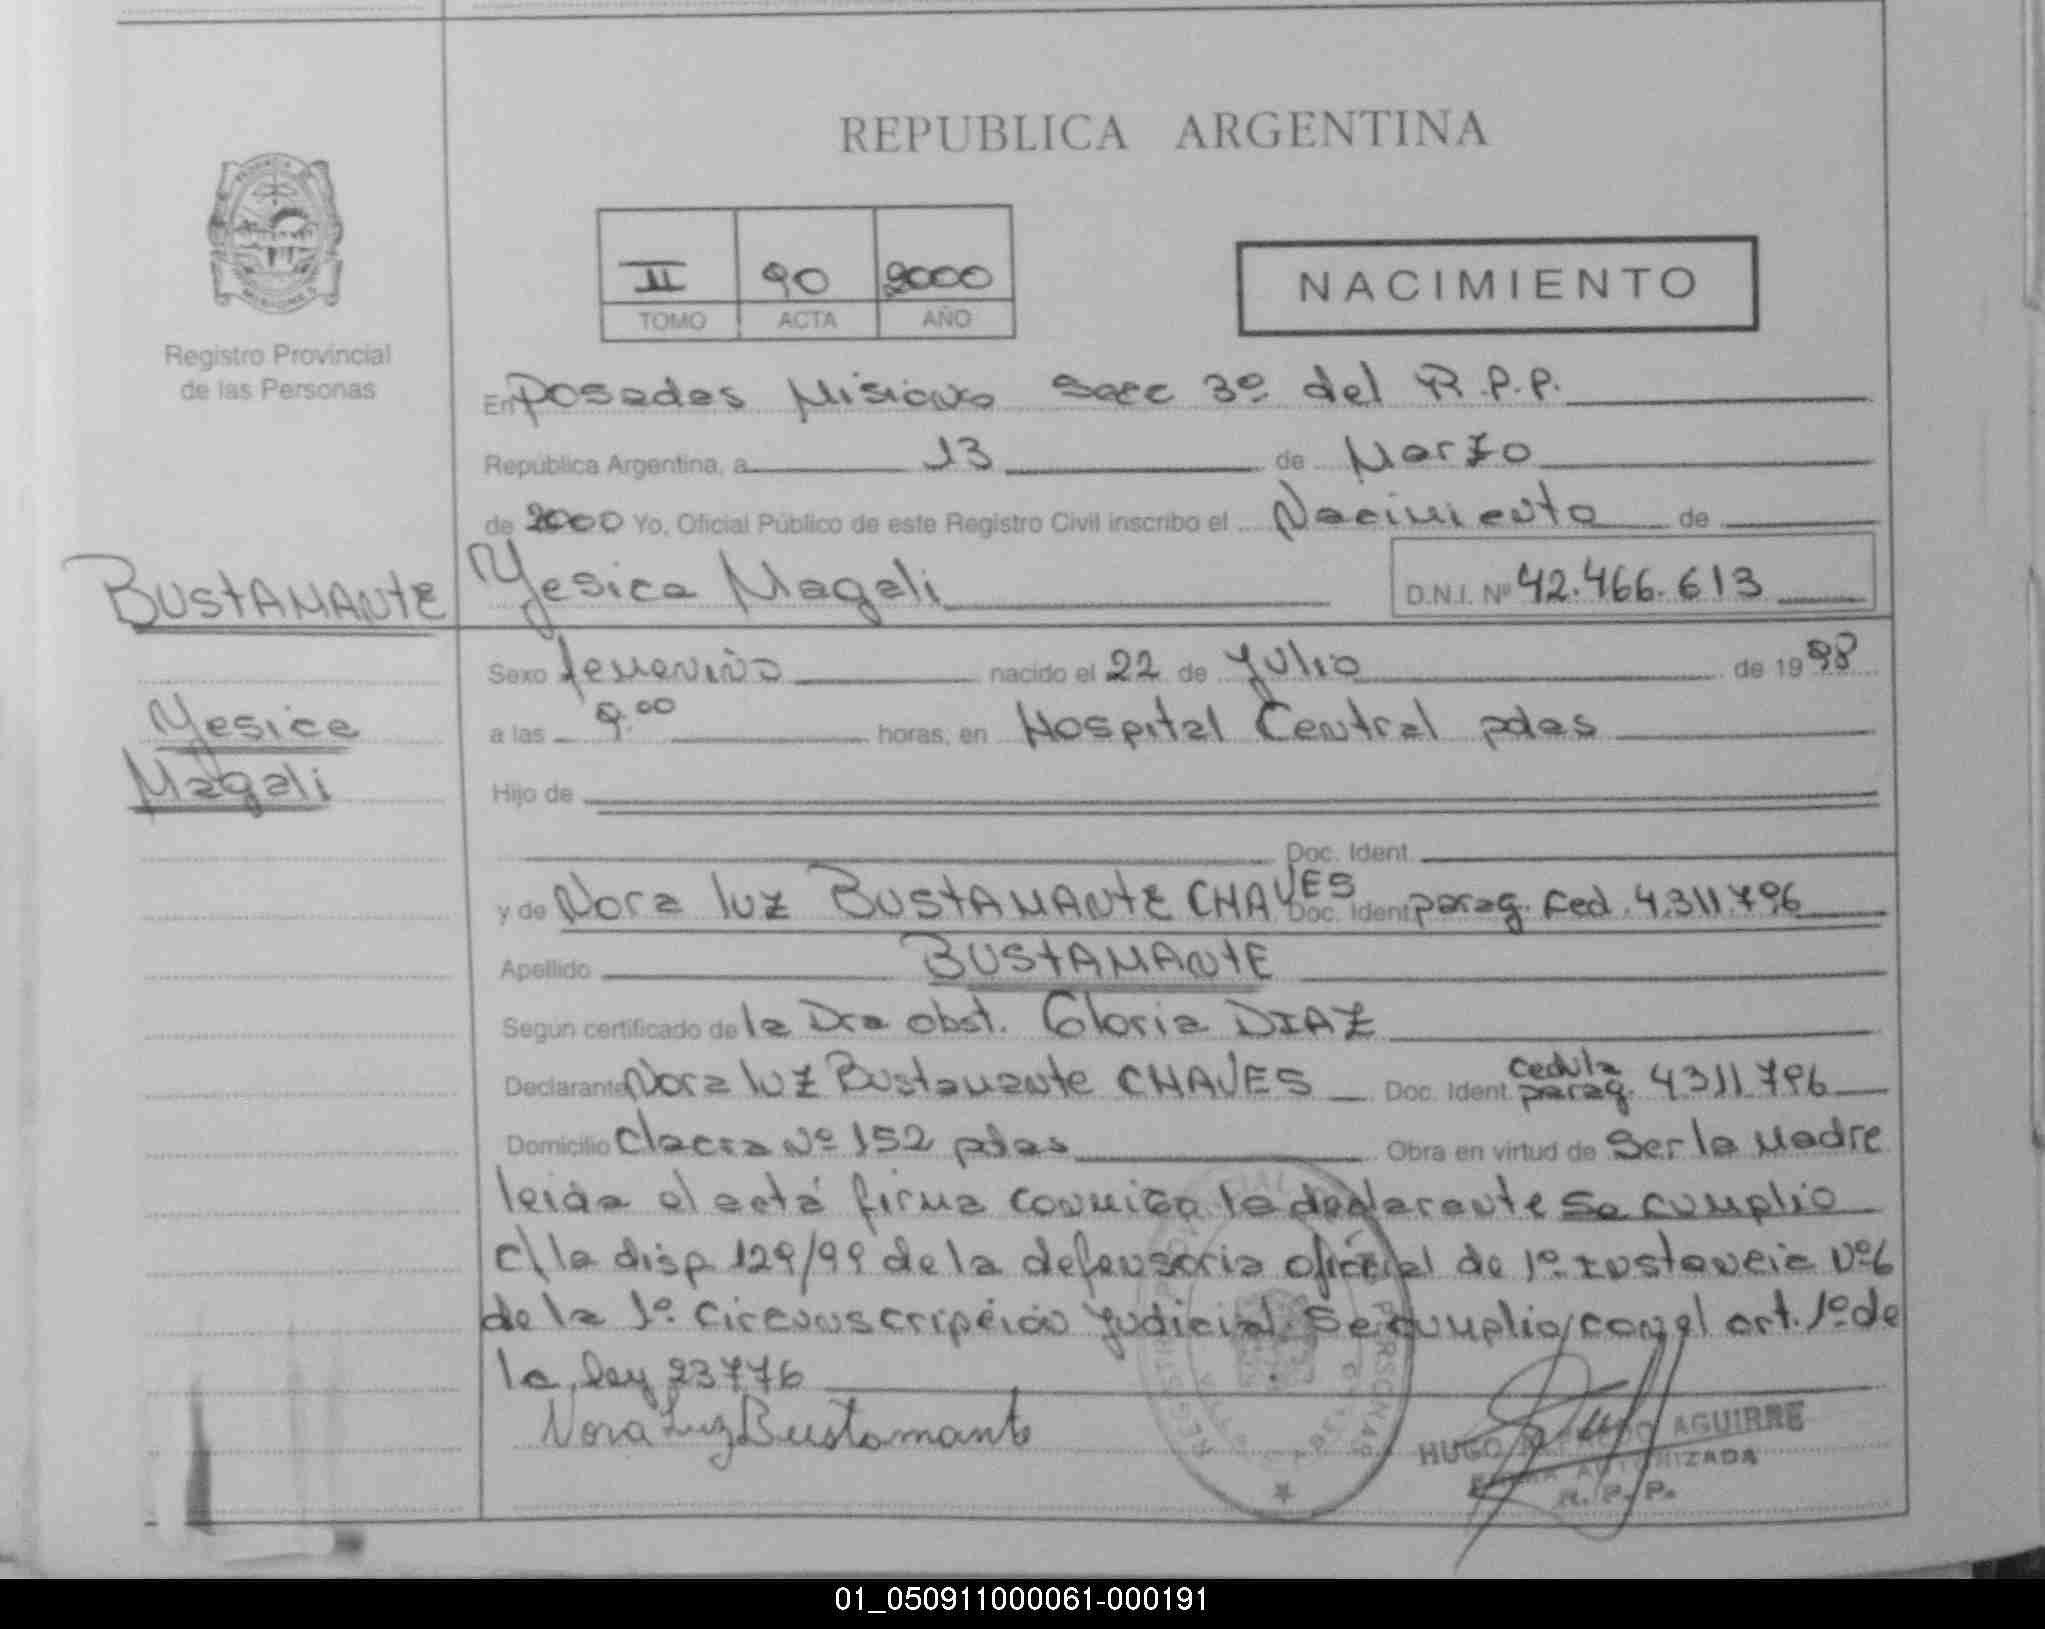 REPUBLICA ARGENTINA
II 90 2000
TOMO ACTA AÑO
NACIMIENTO
Registro Provincial
de las Personas
En Posadas Misiones Secc 3º del R.P.P.
República Argentina, a 13 de Marzo
de 2000 Yo, Oficial Público de este Registro Civil inscribo el Nacimiento de
BUSTAMANTE
Yesica Magali D.N.I. Nº 42.466.613
Sexo femenino nacido el 22 de Julio de 1998
Yesica
a las 9.00 horas, en Hospital Central pdas
Magali
Hijo de
Doc. Ident.
y de Nora luz BUSTAMANTE CHAVES Doc. Ident parag. Ced. 4.311.796
Apellido BUSTAMANTE
Según certificado de la Dra obst. Gloria DIAZ
Declarante Nora luz Bustamante CHAVES Doc. Ident. cedula parag. 4311.796
Domicilio Chacra Nº 152 pdas Obra en virtud de Ser la Madre
leida el acta firma conmigo la declarante Se cumplio
c/la disp 129/99 de la defensoria oficial de 1º Instancia Nº6
de la 1º Circunscripción Judicial. Se cumplio con el art. 1º de
la ley 23776
Nora Luz Bustamante
HUGO AGUIRRE
FIRMA AUTORIZADA
R. P. P.
01_050911000061-000191